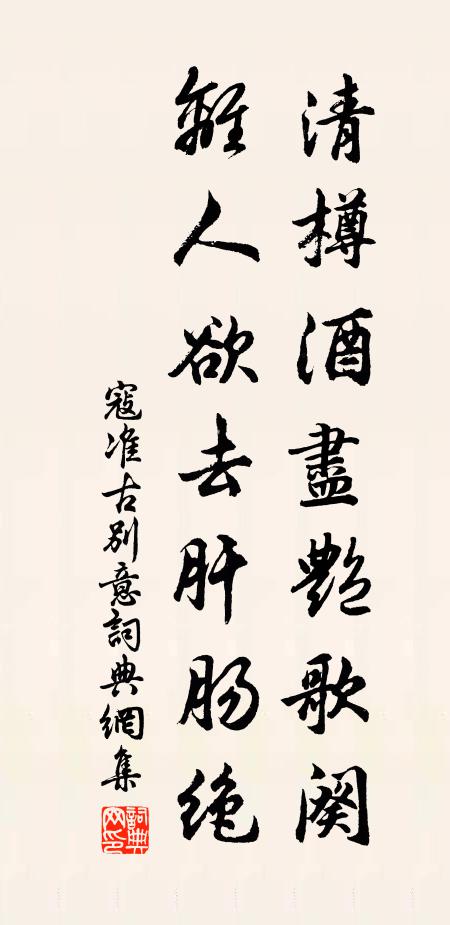 清樽酒盡艷歌闋
離人欲去肝腸絶
寇准古别意詞典網集
詞典網印